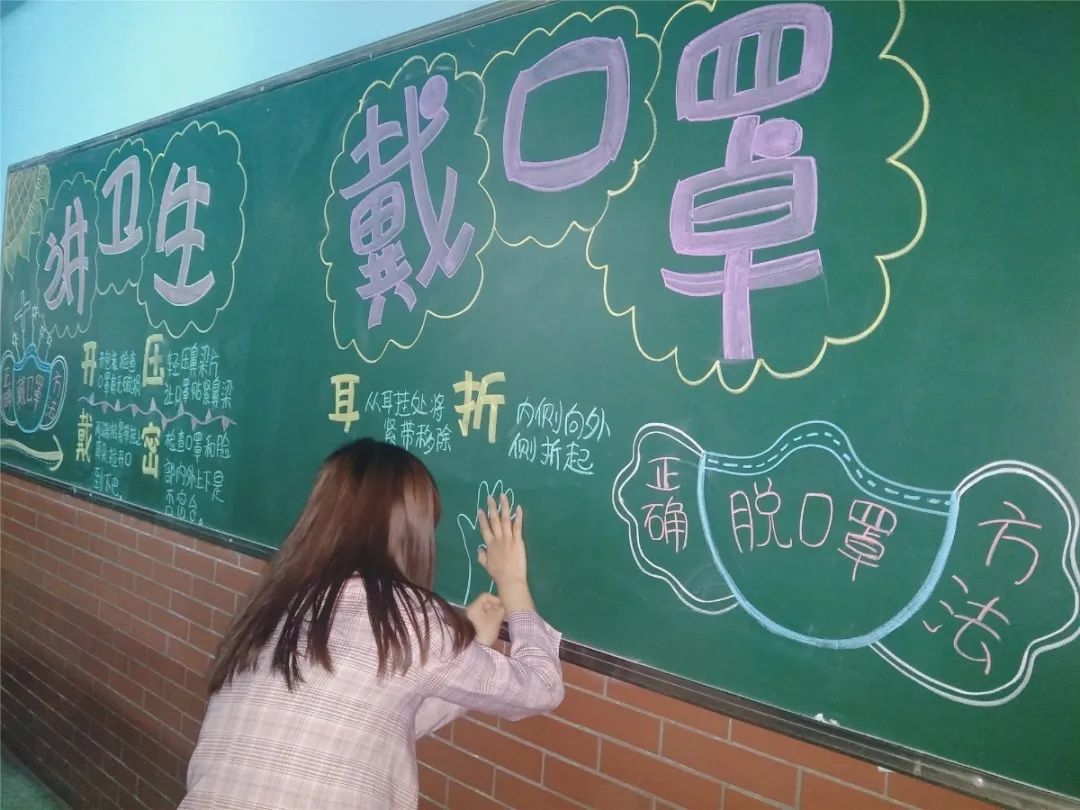 讲卫生
戴口罩
戴口罩
方法
开
检查
压
轻压鼻梁片
让口罩贴紧鼻梁
戴
到下巴
密
检查口罩和脸
部内外上下是
否密合
耳
从耳挂处将
紧带移除
折
内侧向外
侧折起
正确
脱口罩
方法